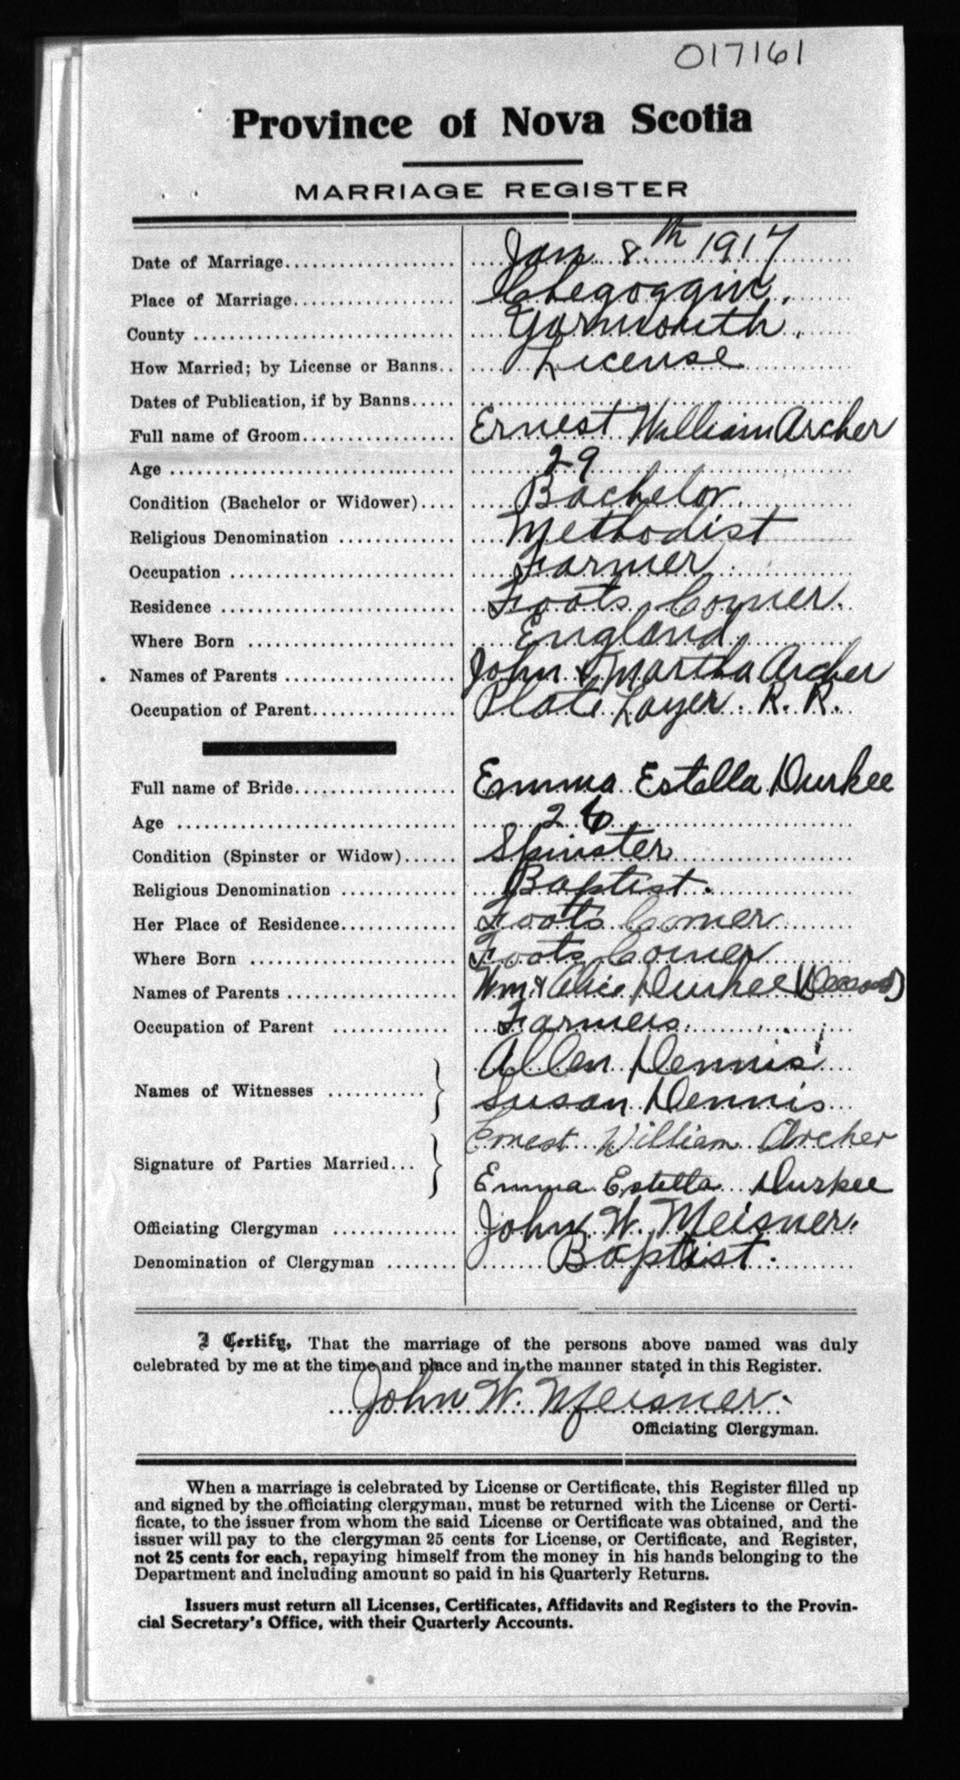 017161
Province of Nova Scotia
MARRIAGE REGISTER
Date of Marriage.................... Jan 8th 1917
Place of Marriage................... Chegoggin,
County .............................. Yarmouth
How Married; by License or Banns.. License
Dates of Publication, if by Banns.....
Full name of Groom.................. Ernest William Archer
Age ................................. 29
Condition (Bachelor or Widower).... Bachelor
Religious Denomination ............. Methodist
Occupation .......................... Farmer
Residence ........................... Foots Corner.
Where Born ......................... England
Names of Parents .................... John & Martha Archer
Occupation of Parent................. Plate Layer. R. R.
Full name of Bride................... Emma Estella Durkee
Age ................................. 26
Condition (Spinster or Widow)...... Spinster
Religious Denomination ............. Baptist.
Her Place of Residence............. Foots Corner
Where Born ......................... Foots Corner
Names of Parents .................... Wm & Alice Durkee
Occupation of Parent ............... Farmers
Names of Witnesses ........... Allen Dennis
Susan Dennis
Signature of Parties Married... Ernest William Archer
Emma Estella Durkee
Officiating Clergyman .............. John W. Meisner.
Denomination of Clergyman ........ Baptist.
I Certify, That the marriage of the persons above named was duly
celebrated by me at the time and place and in the manner stated in this Register.
John W. Meisner.
Officiating Clergyman.
When a marriage is celebrated by License or Certificate, this Register filled up
and signed by the officiating clergyman, must be returned with the License or Certi-
ficate, to the issuer from whom the said License or Certificate was obtained, and the
issuer will pay to the clergyman 25 cents for License, or Certificate, and Register,
not 25 cents for each, repaying himself from the money in his hands belonging to the
Department and including amount so paid in his Quarterly Returns.
Issuers must return all Licenses, Certificates, Affidavits and Registers to the Provin-
cial Secretary's Office, with their Quarterly Accounts.